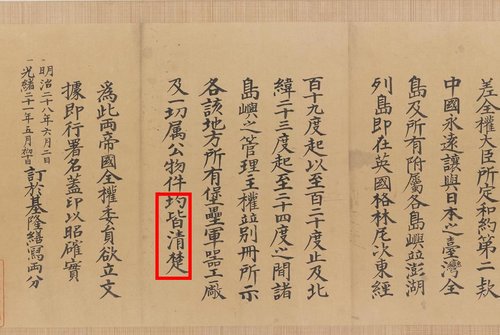 差全權大臣所定和約第二款
中國永遠讓與日本之臺灣全
島及所有附屬各島嶼並澎湖
列島即在英國格林尼次東經
百十九度起以至百二十度止及北
緯二十三度起至二十四度之間諸
島嶼之管理主權並別冊所示
各該地方所有堡壘軍器工廠
及一切属公物件均皆清楚
為此兩帝國全權委員欲立文
據即行署名蓋印以昭確實
明治二十八年六月二日
光緒二十一年五月初十日
訂於基隆繕寫兩分